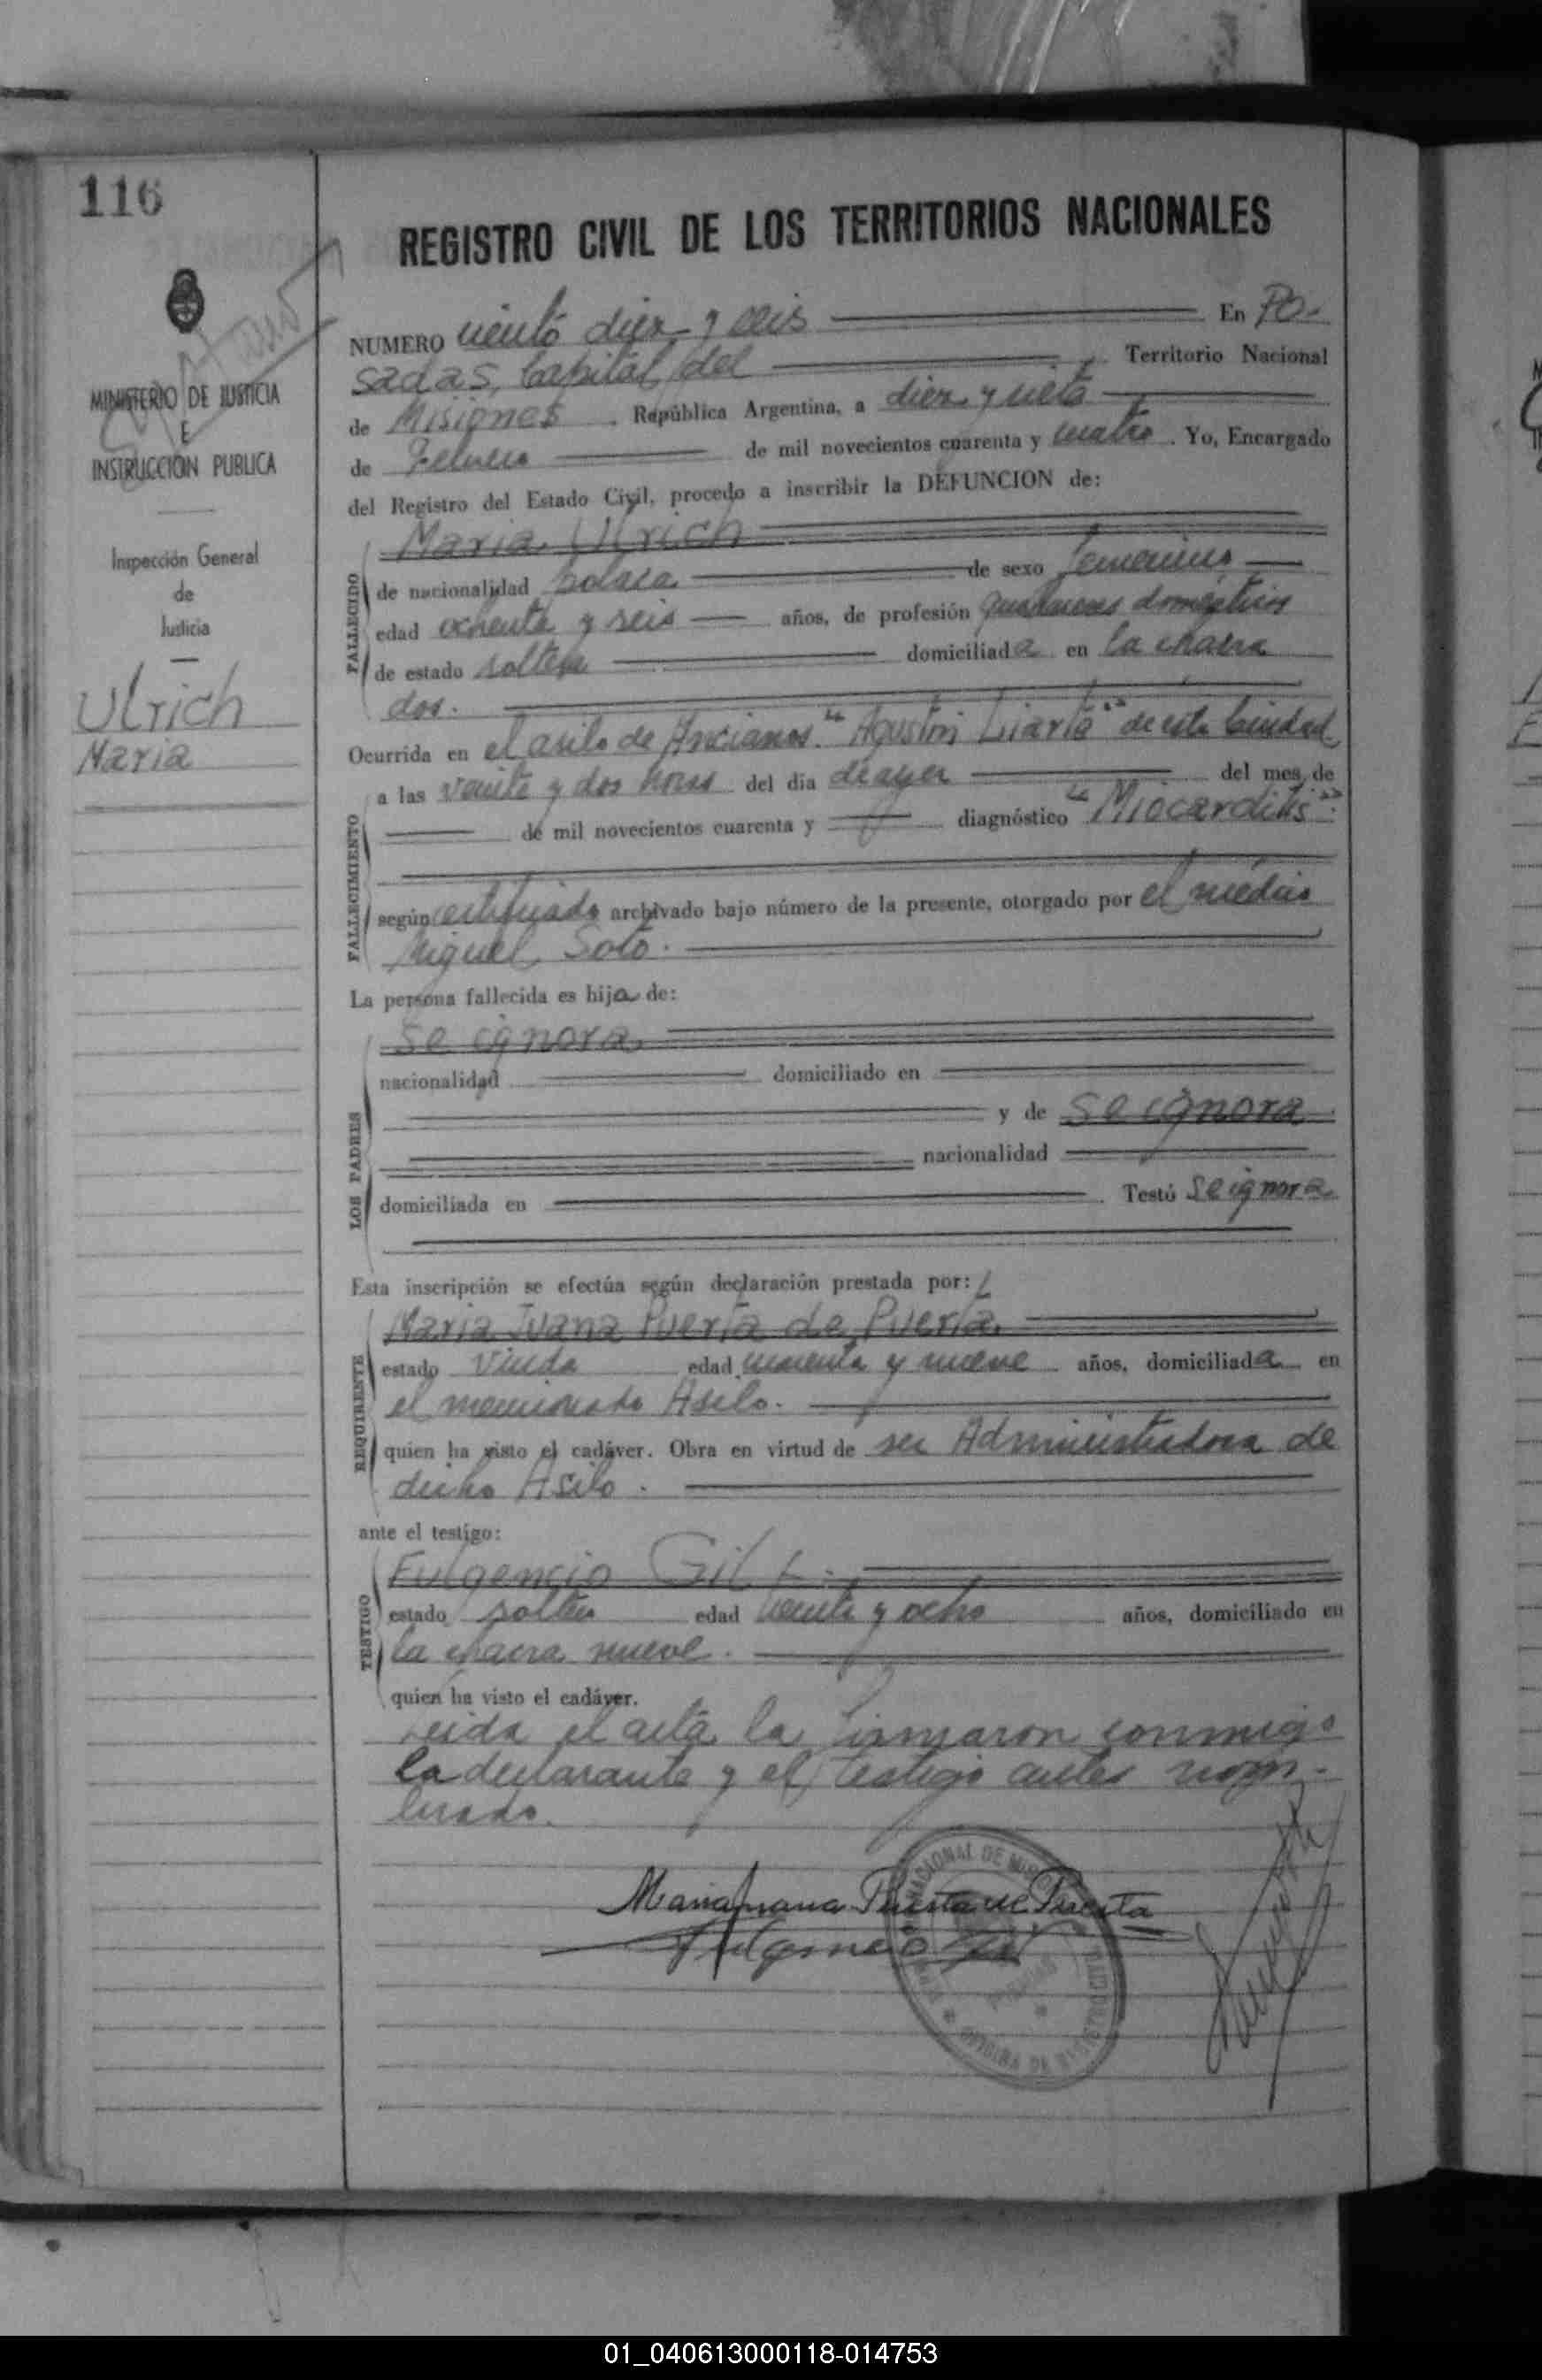 116
MINISTERIO DE JUSTICIA
E
INSTRUCCIÓN PUBLICA
Inspección General
de
Justicia
Ulrich
Maria
REGISTRO CIVIL DE LOS TERRITORIOS NACIONALES
NUMERO ciento diez y seis En Po-
sadas, Capital del Territorio Nacional
de Misiones. República Argentina, a diez y siete
de Febrero de mil novecientos cuarenta y cuatro. Yo, Encargado
del Registro del Estado Civil, procedo a inscribir la DEFUNCION de:
FALLECIDO
Maria Ulrich
de nacionalidad polaca de sexo femenino
edad ochenta y seis años, de profesión quehaceres domésticos
de estado soltera domiciliada en la chacra
dos.
Ocurrida en el asilo de Ancianos "Agustin Liarte" de esta Ciudad
FALLECIMIENTO
a las veinte y dos horas del día de ayer del mes de
de mil novecientos cuarenta y diagnóstico "Miocarditis".
según certificado archivado bajo número de la presente, otorgado por el médico
Miguel Soto.
La persona fallecida es hija de:
LOS PADRES
Se ignora
nacionalidad domiciliado en
y de Se ignora
nacionalidad
domiciliada en Testó Se ignora
Esta inscripción se efectúa según declaración prestada por:
REQUIRENTE
Maria Juana Puerta de Puerta.
estado viuda edad cuarenta y nueve años, domiciliada en
el mencionado Asilo.
quien ha visto el cadáver. Obra en virtud de ser Administradora de
dicho Asilo.
ante el testigo:
TESTIGO
Fulgencio Gil
estado soltero edad veinte y ocho años, domiciliado en
la chacra nueve.
quien ha visto el cadáver.
Leida el acta la firmaron conmigo
la declarante y el testigo antes nom-
brado.
Maria Juana Puerta de Puerta
Fulgencio Gil
01_040613000118-014753